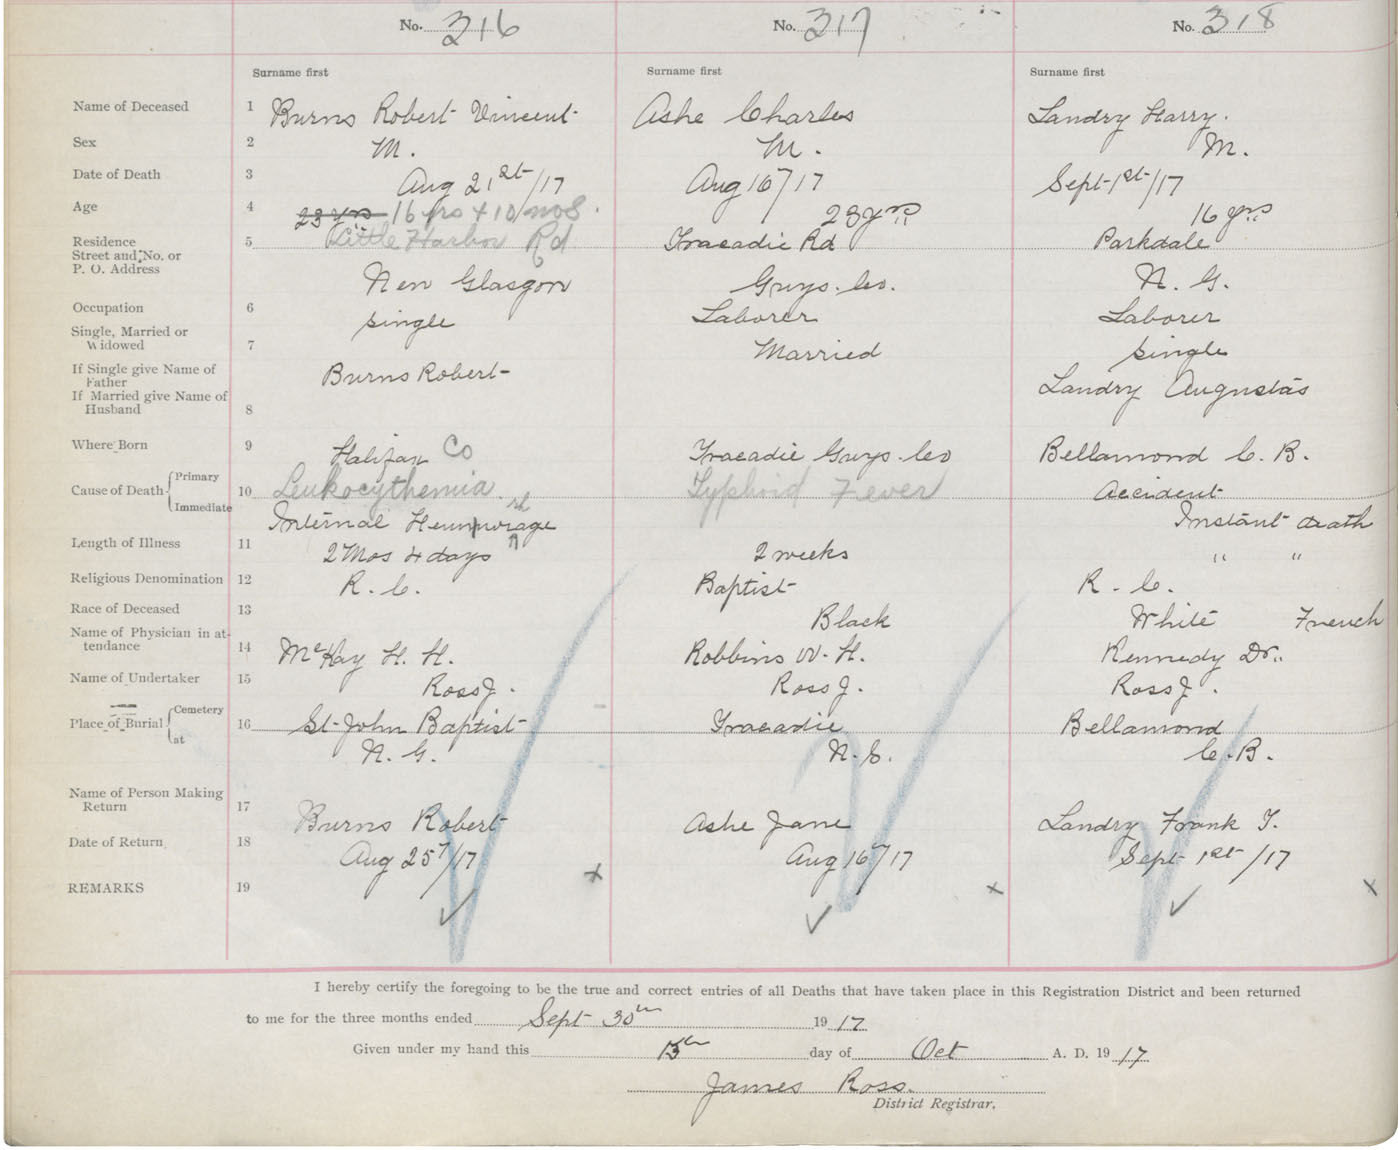 No. 316 No. 317 No. 318
Surname first Surname first Surname first
Name of Deceased 1 Burns Robert Vincent Ashe Charles Landry Harry.
Sex 2 M. M. M.
Date of Death 3 Aug 21st/17 Aug 16/17 Sept 1st/17
Age 4 23 yrs 16 yrs + 10 mos. 23 yrs 16 yrs
Residence 5 Little Harbor Rd. Tracadie Rd Parkdale
Street and No. or
P. O. Address New Glasgow Guys. Co. N. G.
Occupation 6 single Laborer Laborer
Single, Married or
Widowed 7 Married single
If Single give Name of
Father Burns Robert Landry Augustas
If Married give Name of
Husband 8
Where Born 9 Halifax Co Tracadie Guys. Co Bellamond C. B.
Cause of Death Primary
10 Leukocythemia Typhoid Fever Accident
Immediate Internal Hemmorage rh Instant death
Length of Illness 11 2 Mos 4 days 2 weeks " "
Religious Denomination 12 R. C. Baptist R. C.
Race of Deceased 13 Black White French
Name of Physician in at-
tendance 14 McKay H. H. Robbins W. H. Kennedy Dr.
Name of Undertaker 15 Ross J. Ross J. Ross J.
Place of Burial Cemetery 16 St John Baptist Tracadie Bellamond
at N. G. N. S. C. B.
Name of Person Making
Return 17 Burns Robert Ashe Jane Landry Frank T.
Date of Return 18 Aug 25/17 Aug 16/17 Sept 1st/17
REMARKS 19 x x x
I hereby certify the foregoing to be the true and correct entries of all Deaths that have taken place in this Registration District and been returned
to me for the three months ended Sept 30th 1917
Given under my hand this 15th day of Oct A. D. 1917
James Ross.
District Registrar.